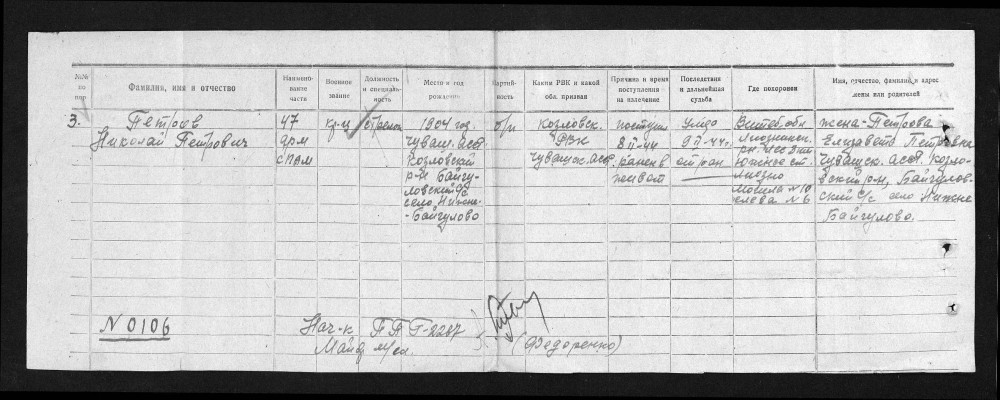 №№ по пор
Фамилия, имя и отчество
Наименование части
Военное звание
Должность и специальность
Место и год рождения
Партийность
Каким РВК и какой обл. призван
Причина и время поступления на излечение
Последствия и дальнейшая судьба
Где похоронен
Имя, отчество, фамилия и адрес жены или родителей
3.
Петров
Николай Петрович
47
арм
СПАМ
кр-ц
стрелок
1904 год
Чуваш. асср
Козловский
р-н Байгу-
ловский с/с
село Нижне-
-Байгулово
б/п
Козловск.
РВК
Чувашск. асср
поступил
8 II-44
ранен в
живот
Умер
9 II-44 г.
от ран
Витеб. обл
Лиознен.
р-н
южнее ст.
Лиозно
могила №10
слева №6
жена-Петрова
Елизавета Петровна
Чувашск. асср. Козло-
вский р-н, Байгулов-
ский с/с село Нижне
Байгулово.
N 0106
Нач-к ППГ-2287
Майор м/сл.
(Федоренко)